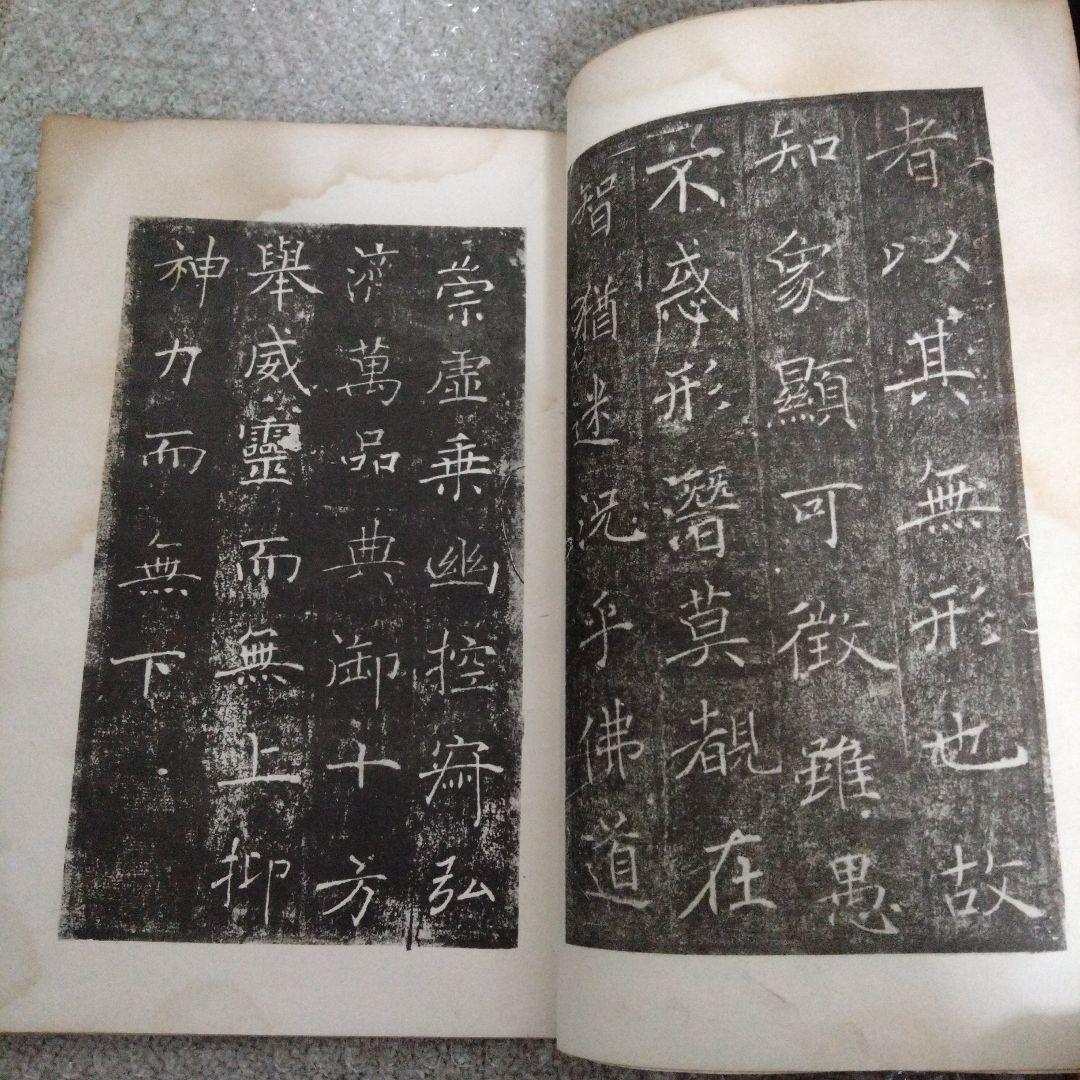 者以其無形也故
知象顯可徵雖愚
不惑形潛莫覩在
智猶迷況乎佛道
崇虛乗幽控寂弘
濟萬品典御十方
舉威靈而無上抑
神力而無下